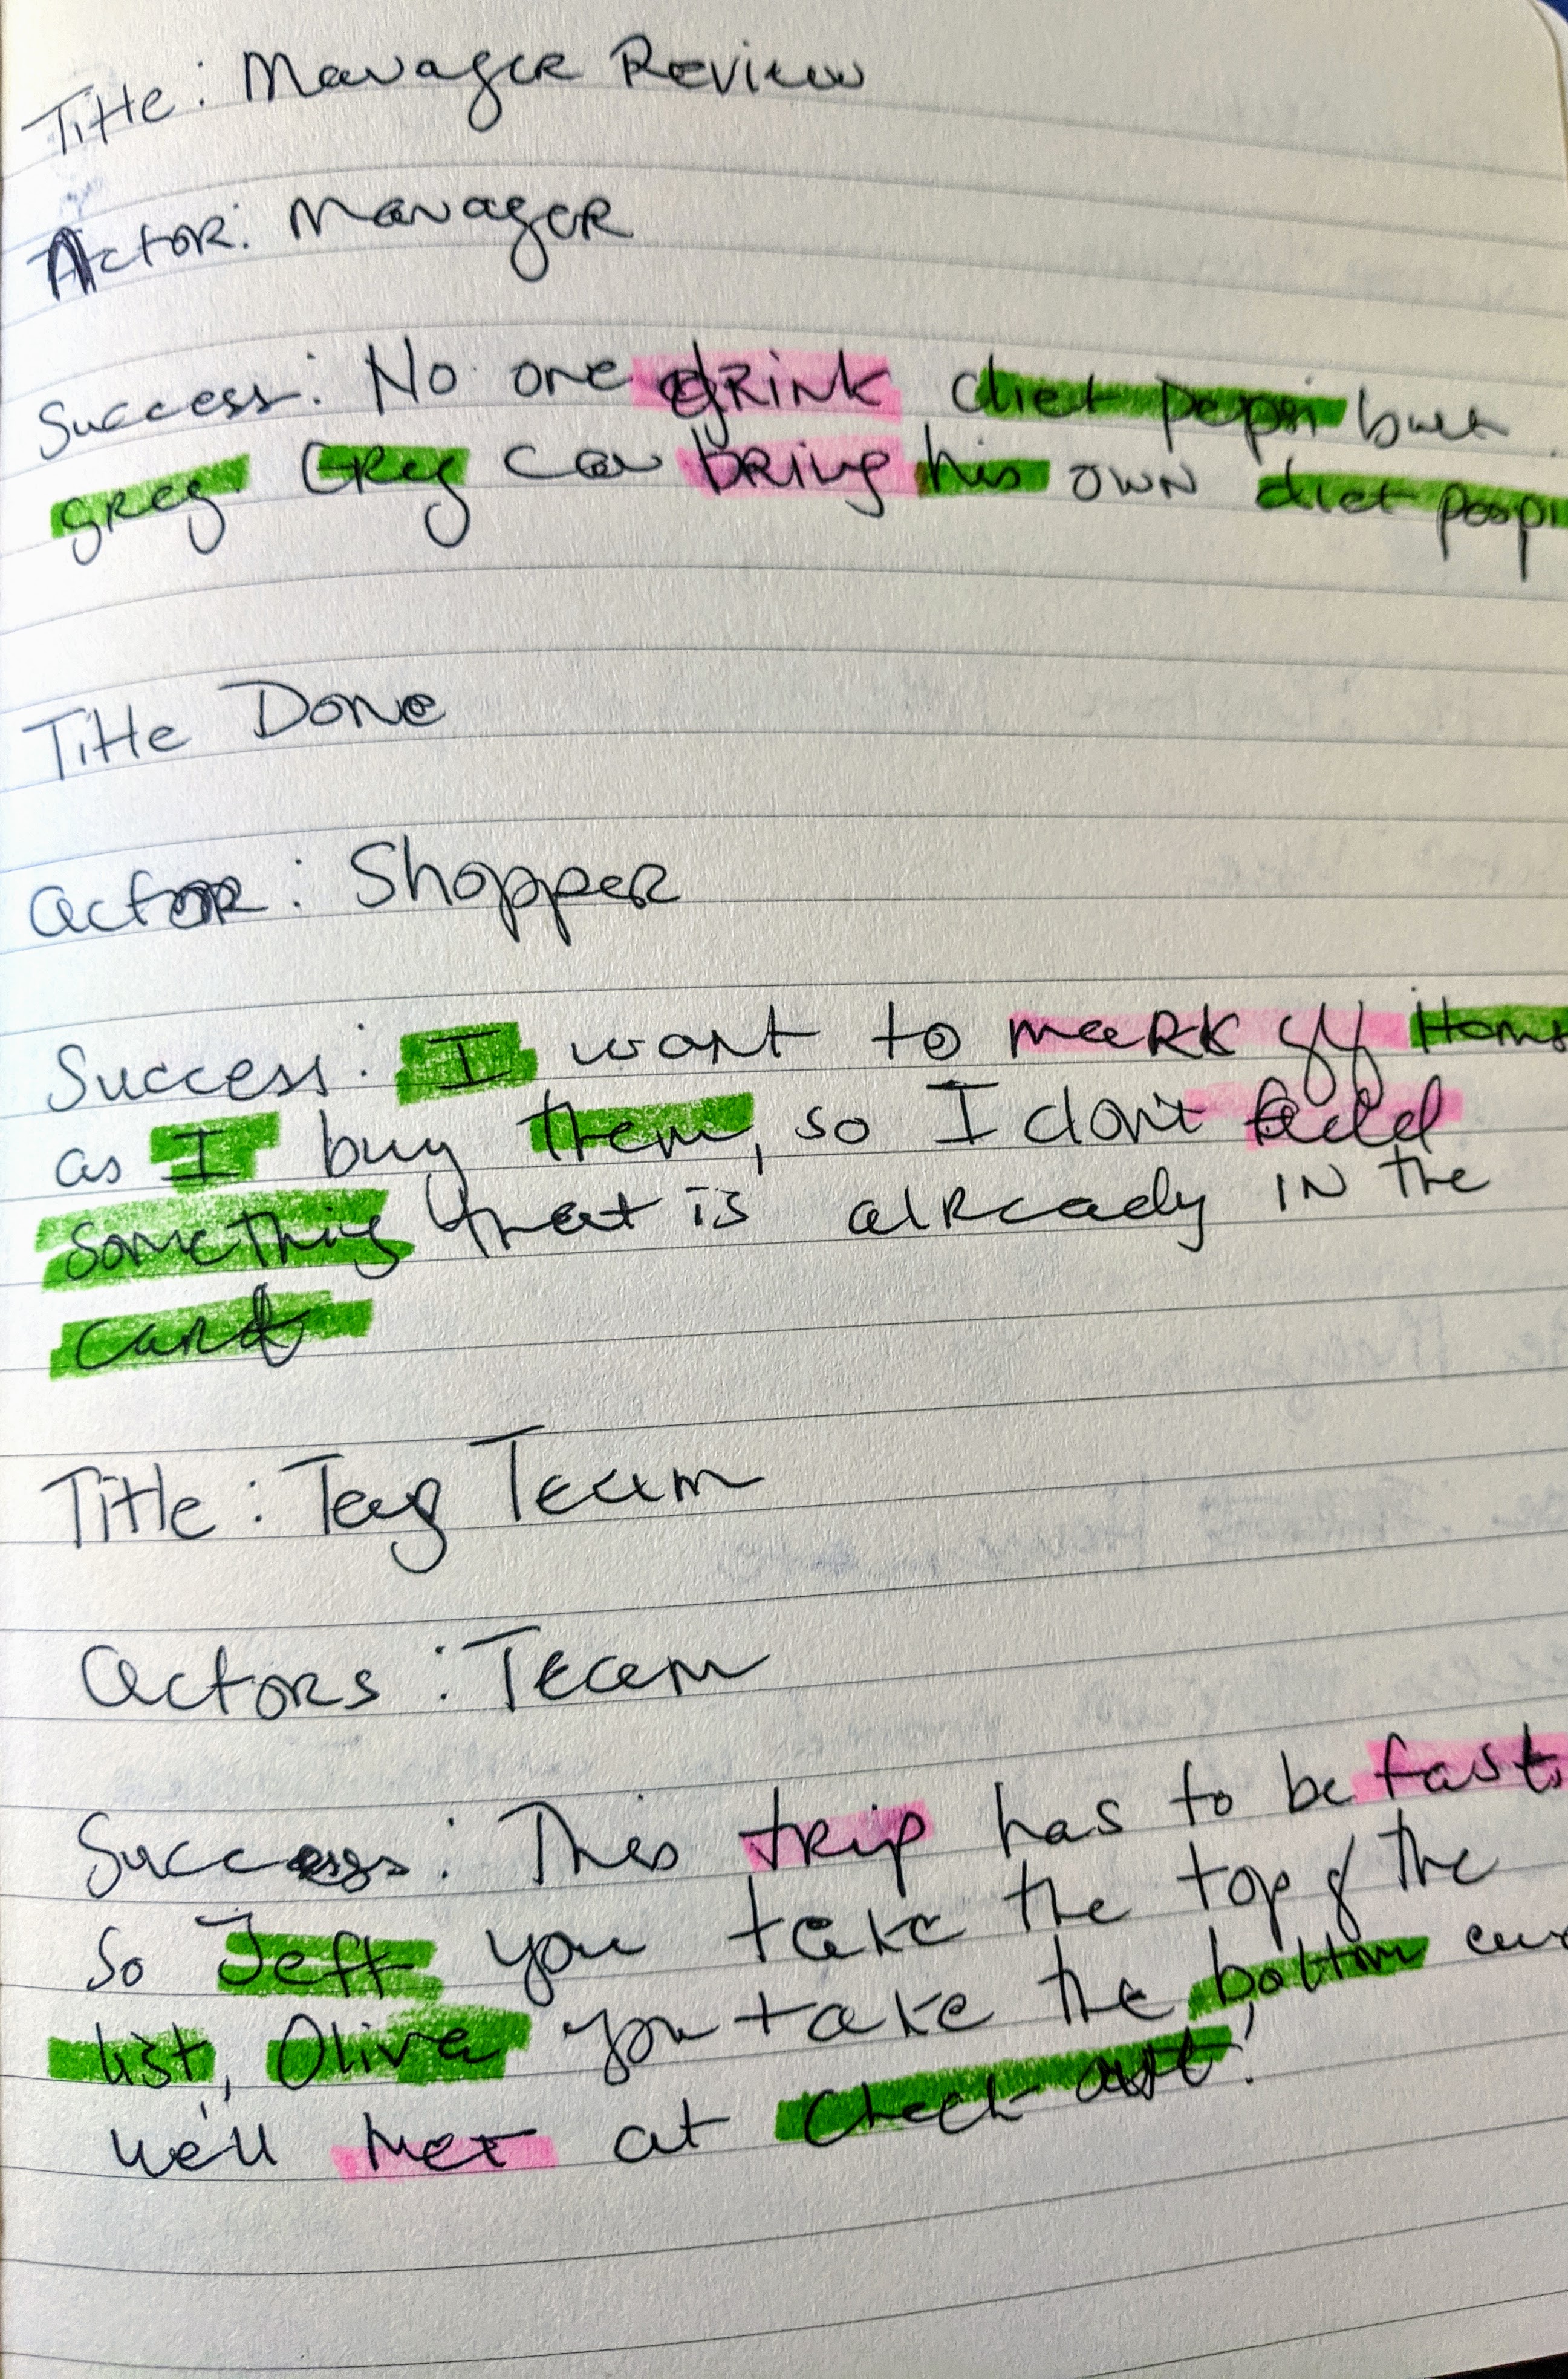 Title: Manager Review
Actor: Manager
Success: No one drink diet pepsi but
greg. Greg can bring his own diet
Title Done
actor: Shopper
Success: I want to mark off items
as I buy them, so I don't add
something that is already in the
cart
Title: Tag Team
Actors: Team
Success: This trip has to be fast,
So Jeff you take the top of the
list, Oliva you take the bottom
we'll met at check out!